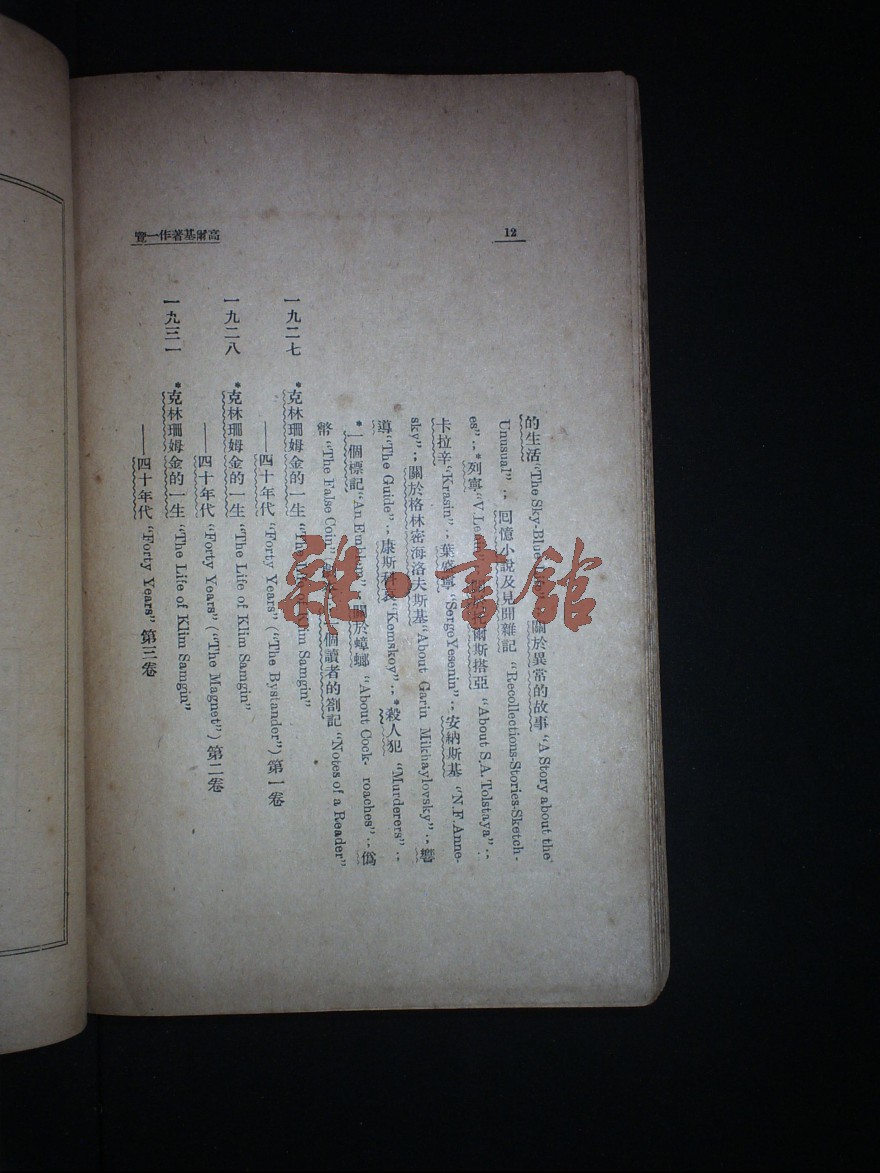 高爾基著作一覽
12
的生活“The Sky-Blue 關於異常的故事“A Story about the
Unusual”；回憶小說及見聞雜記“Recollections-Stories-Sketch-
es”；*列寧“V. 爾斯塔亞“About S.A. Tolstaya”；
卡拉辛“Krasin”；葉賽寧“Serge Yesenin”；安納斯基“N.F. Anne-
sky”；關於格林密海洛夫斯基“About Garin Mikhaylovsky”；嚮
導“The Guide”；康斯 “Kemskoy”；*殺人犯“Murderers”；
*一個標記“An Emblem” 關於蟑螂“About Cock- roaches”；僞
幣“The False Coin” 個讀者的劄記“Notes of a Reader”
一九二七 *克林珊姆金的一生“The Life of Klim Samgin”
——四十年代“Forty Years”(“The Bystander”)第一卷
一九二八 *克林珊姆金的一生“The Life of Klim Samgin”
——四十年代“Forty Years”(“The Magnet”)第二卷
一九三一 *克林珊姆金的一生“The Life of Klim Samgin”
——四十年代“Forty Years”第三卷
雜·書館